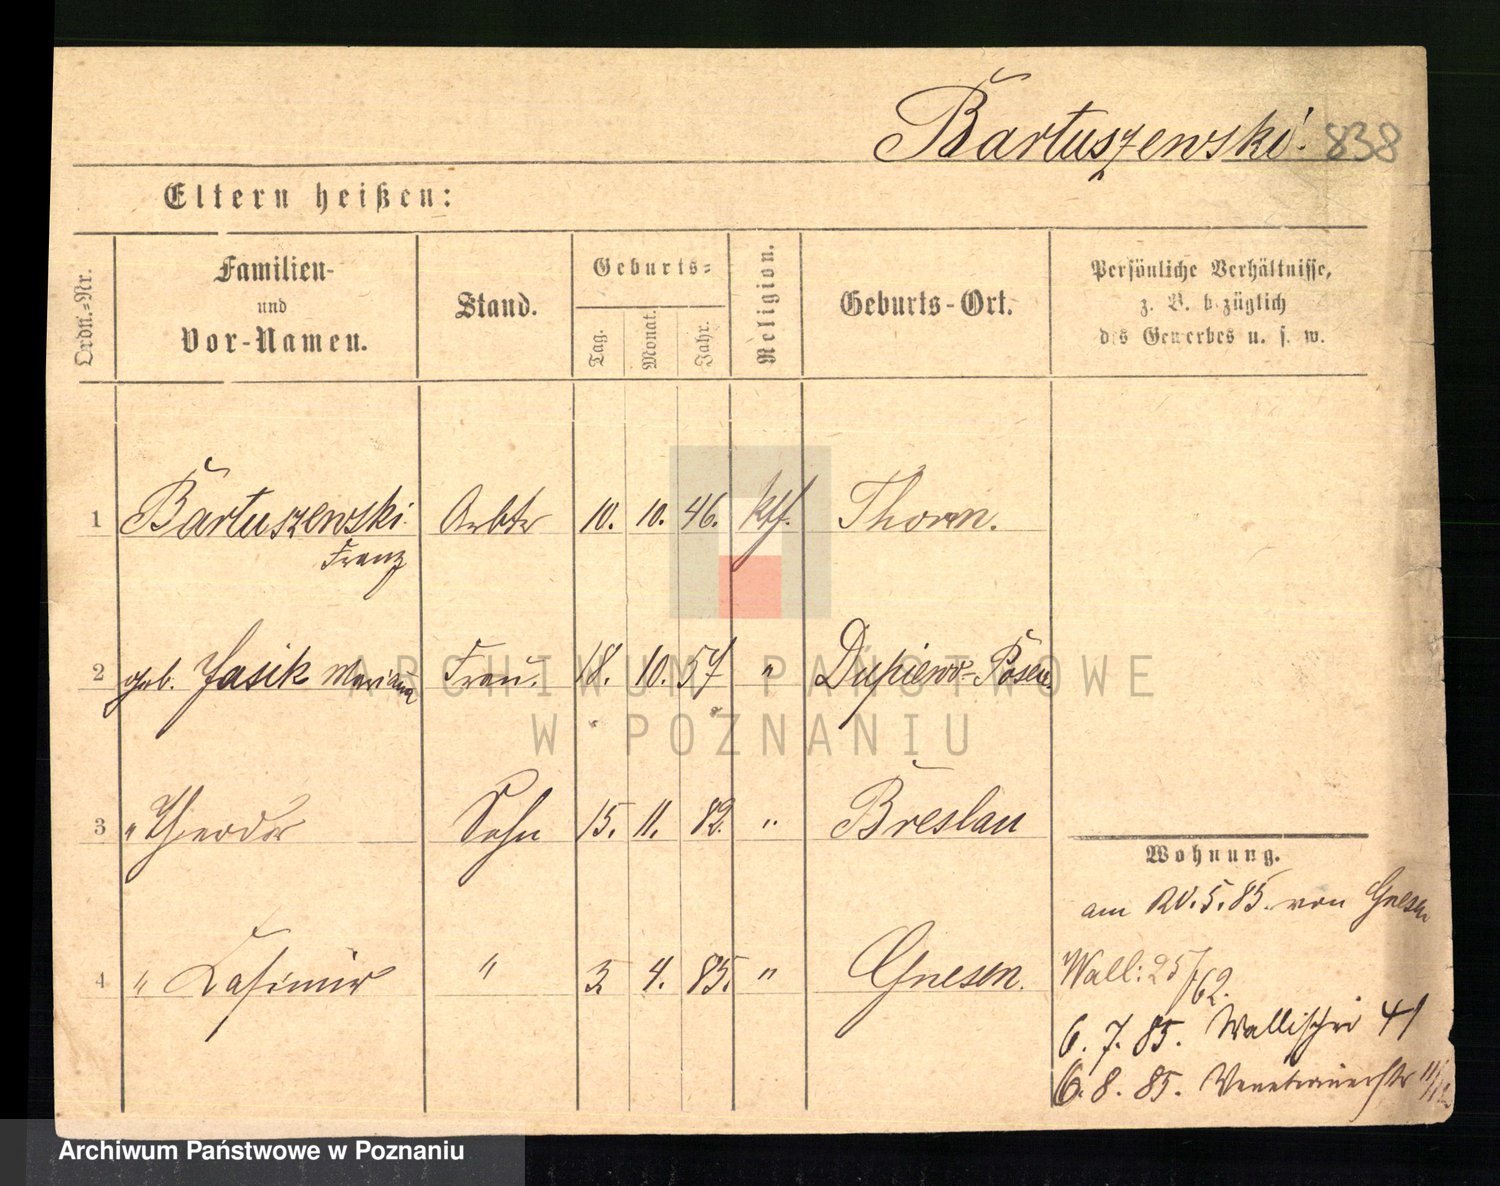 Bartuszewski. 838
Eltern heißen:
Ordn.-Nr.
Familien-
und
Vor-Namen.
Stand.
Geburts-
Tag.
Monat.
Jahr.
Religion.
Geburts-Ort.
Persönliche Verhältnisse,
z. B. bezüglich
des Gewerbes u. s. w.
1 Bartuszewski. Arbtr 10. 10. 46. kth. Thorn.
Franz
2 geb. Jasik Mariana Frau. 18. 10. 57 " Dupiewo-Posen
3 " Theodor Sohn 15. 11. 82. " Breslau
4 " Casimir " 3. 4. 85. " Gnesen.
Wohnung.
am 20.5.85. von Gnesen
Wall: 25/62.
6. 7. 85. Wallischei 41
6. 8. 85. Venetianerstr 11/12
ARCHIWUM PAŃSTWOWE
W POZNANIU
Archiwum Państwowe w Poznaniu